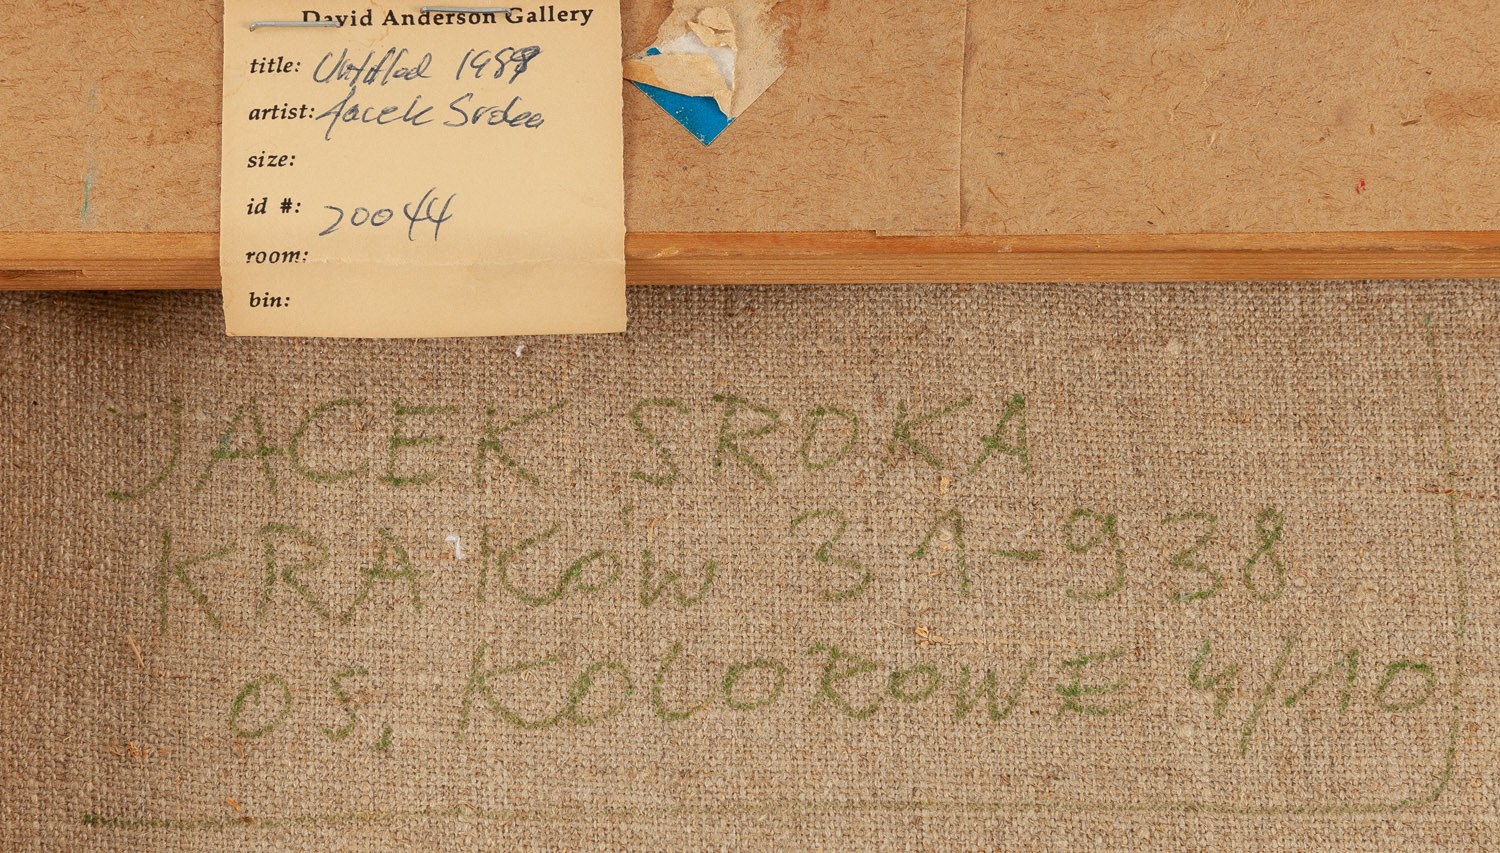 David Anderson Gallery
title: Untitled 1989
artist: Jacek Sroka
size:
id #: 20044
room:
bin:
JACEK SROKA
KRAKów 31-938
os. KOLOROWE 4/10